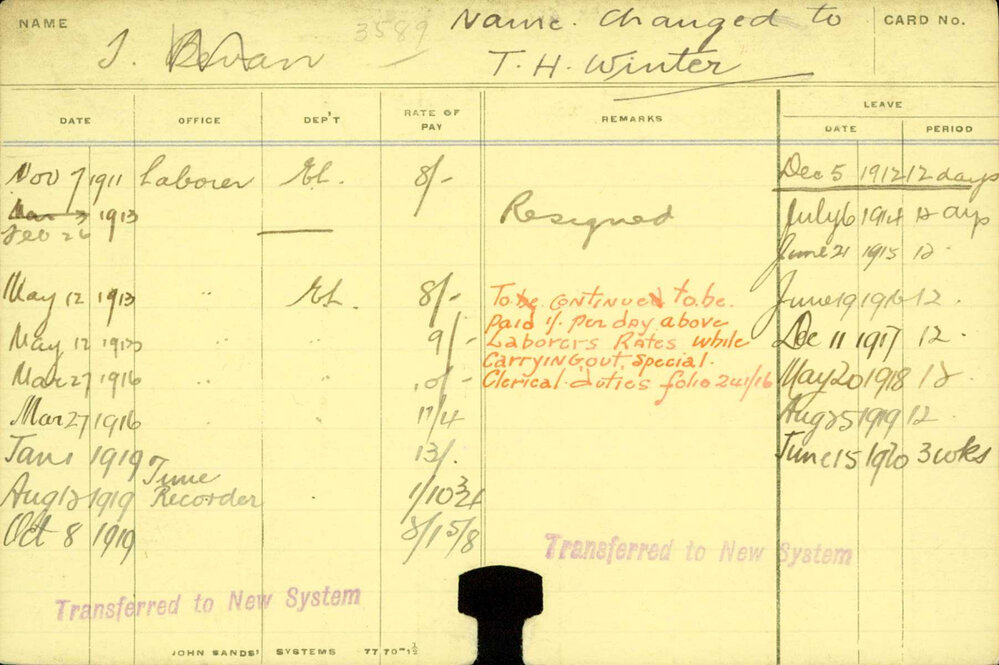 NAME
3589
Name. Changed to
CARD No.
J. Bevan
T. H. Winter
DATE OFFICE DEP'T RATE OF PAY REMARKS LEAVE
DATE PERIOD
Nov 7 1911 Laborer EL. 8/- Dec 5 1912 12 days
Mar 3 1913 Resigned July 6 1914 12 days
Feb 26
June 21 1915 12
May 12 1913 " EL. 8/- To be continued to be. June 19 1916 12.
paid 1/. per day above
May 12 1913 " " 9/- Laborers Rates while Dec 11 1917 12.
carrying out special.
Mar 27 1916 " " 10/- Clerical duties folio 241/16 May 20 1918 12.
Mar 27 1916 11/4 Aug 25 1919 12.
Jan 1 1919 13/. June 15 1920 3 wks
Time
Aug 12 1919 Recorder 1/10 3/4
Oct 8 1919
Transferred to New System
Transferred to New System
JOHN SANDS' SYSTEMS 7770-1½